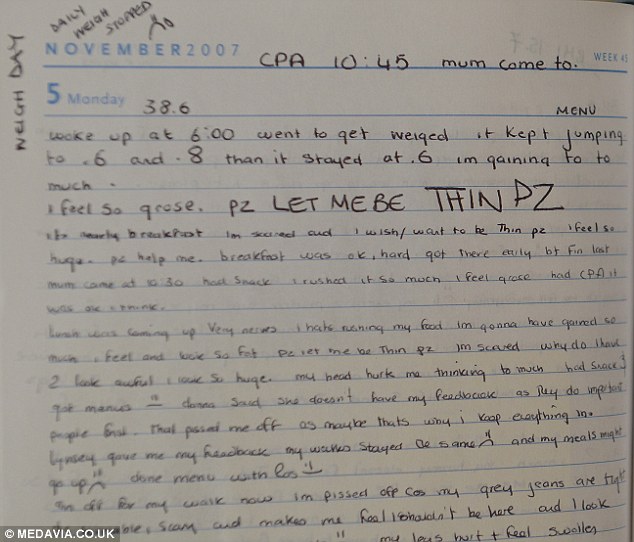 DAILY
WEIGH
STOPPED
WEIGH DAY
NOVEMBER 2007 WEEK 45
CPA 10:45 mum come to.
5 Monday 38.6 MENU
woke up at 6:00 went to get weiged it kept jumping
to .6 and .8 than it stayed at .6 im gaining to to
much.
i feel so grose. PZ LET ME BE THIN PZ
its nearly breakfast im scared and i wish/want to be Thin pz i feel so
huge. pz help me. breakfast was ok, hard got there early bt fin last
mum came at 10:30 had snack i rushed it so much i feel grose had CPA it
was ok i think.
lunch was coming up very nerves i hate my food im gonna have gained so
much i feel and look so fat pz let me be Thin pz im scared why do i have
2 look awful i look so huge. my head hurts me thinking to much had snack
got menus donna said she doesn't have my feedback as they do important
people first. That pissed me off as maybe thats why i keep everything in.
Lynsey gave me my feedback my walks stayed the same and my meals might
go up done menu with
im off for my walk now im pissed off cos my grey jeans are tight
and makes me feel i shouldn't be here and i look
my legs hurt + feel swollen
© MEDAVIA.CO.UK